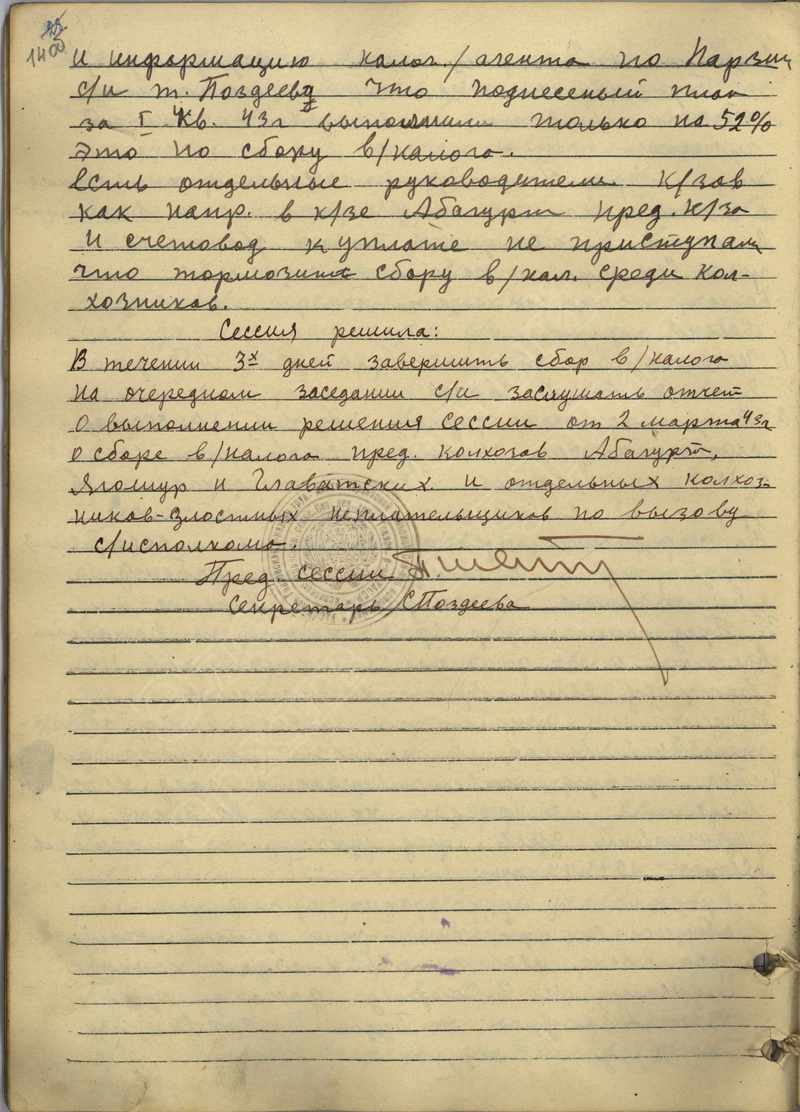 140
и информацию налог./агента по Парзин
с/и т. Поздеева что поднесеный план
за I кв. 43 г выполнили только на 52%
это по сбору в/налога.
Есть отдельные руководители к/зов
как напр. в к/зе Абагурт пред. к/за
и счетовод к уплате не приступали
что тормозит сбору в/нал. среди кол-
хозников.
Сессия решила:
В течении 3х дней завершить сбор в/налога
на очередном заседании с/и заслушать отчет
о выполнении решения сессии от 2 марта 43г
о сборе в/налога пред. колхозов Абагурт,
Ягошур и Главатских и отдельных колхоз-
ников-злостных неплательщиков по вызову
с/исполкома.
Пред. сессии
Секретарь С Поздеева